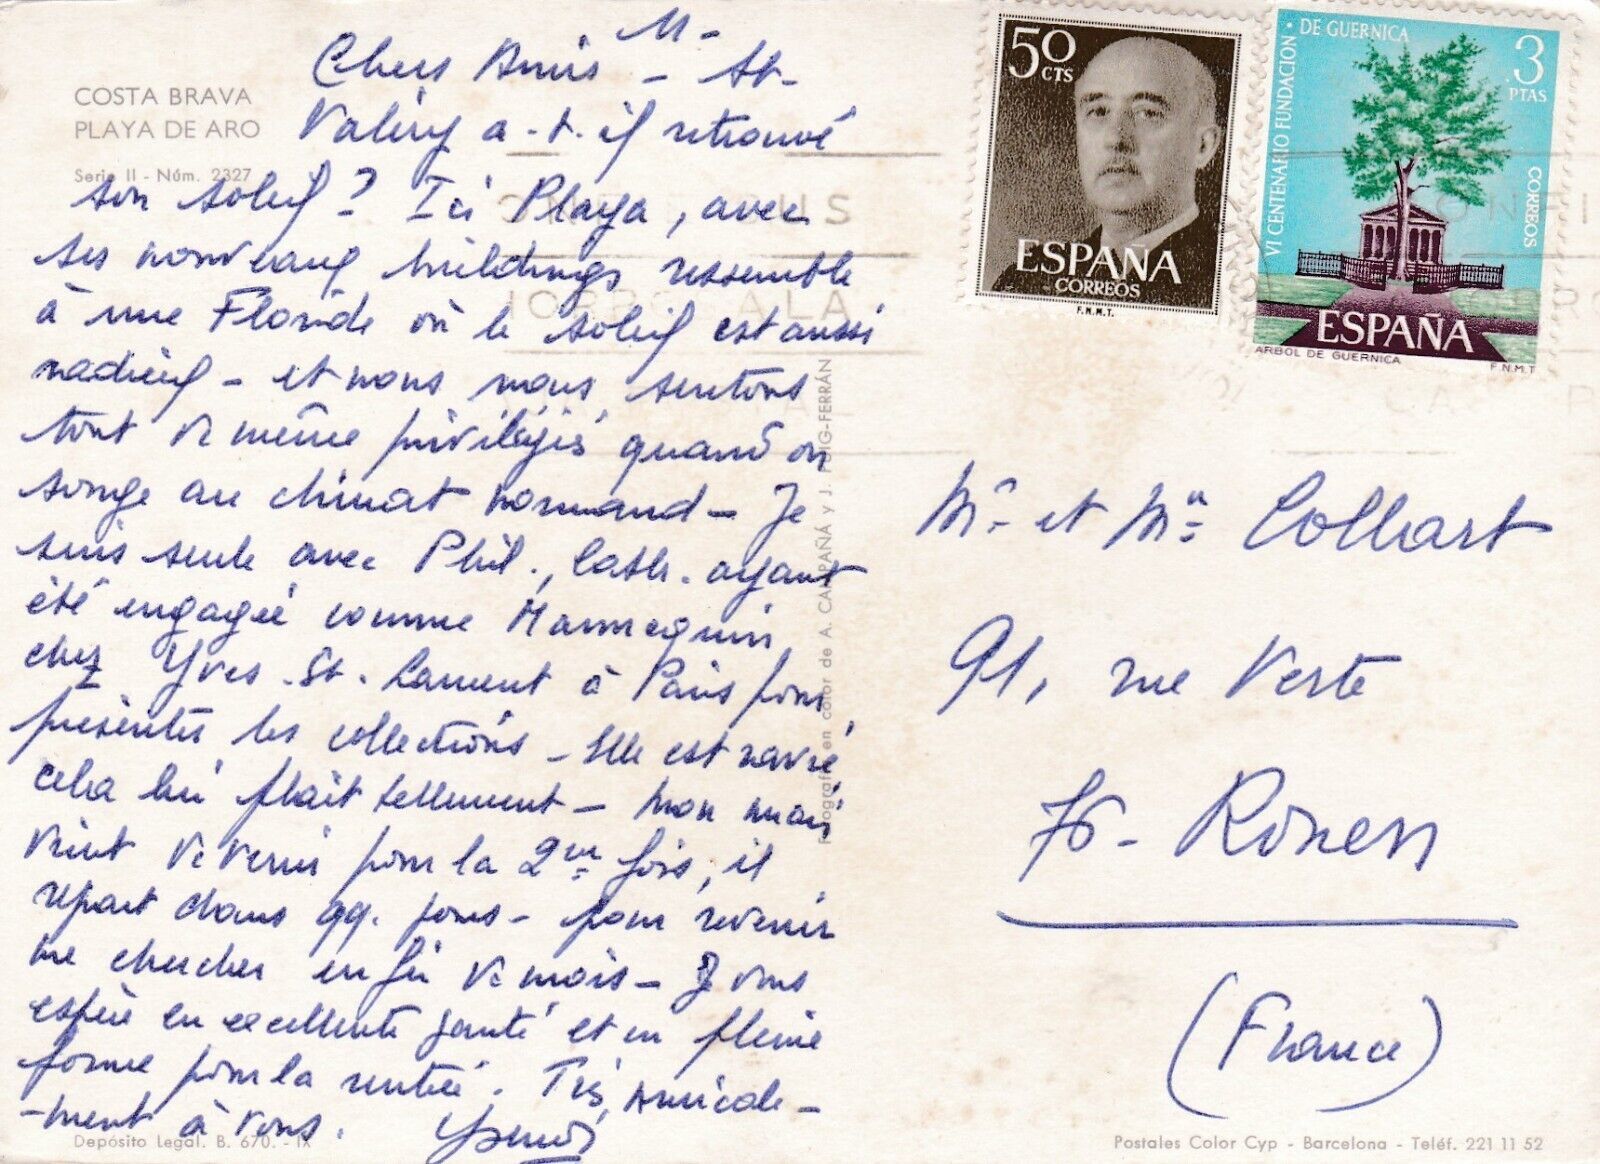 COSTA BRAVA
PLAYA DE ARO
Serie II - Núm. 2327
Chers Amis - St-
Valéry a-t-il retrouvé
son soleil? Ici Playa, avec
ses nouveaux buildings ressemble
à une Floride où le soleil est aussi
radieux - et nous nous sentons
tout de même privilégiés quand on
songe au climat normand - Je
suis seule avec Phil., Cath. ayant
été engagée comme Mannequin
chez Yves St. Laurent à Paris pour
présenter les collections - Elle est ravie
cela lui plait tellement - Mon mari
vient de venir pour la 2me fois, il
repart dans qq. jours - pour revenir
me chercher en fin de mois - Je vous
espère en excellente santé et en pleine
forme pour la rentrée. Très Amicale-
-ment à vous.
Depósito Legal. B. 670. - IX
Fotografía en color de A. CAMPAÑÁ y J. PUIG-FERRÁN
50 CTS
ESPAÑA
CORREOS
F.N.M.T.
VI CENTENARIO FUNDACION · DE GUERNICA
3 PTAS
CORREOS
ESPAÑA
ARBOL DE GUERNICA
F.N.M.T
Mr et Mme Collart
91, rue Verte
76 - Rouen
(France)
Postales Color Cyp - Barcelona - Teléf. 221 11 52